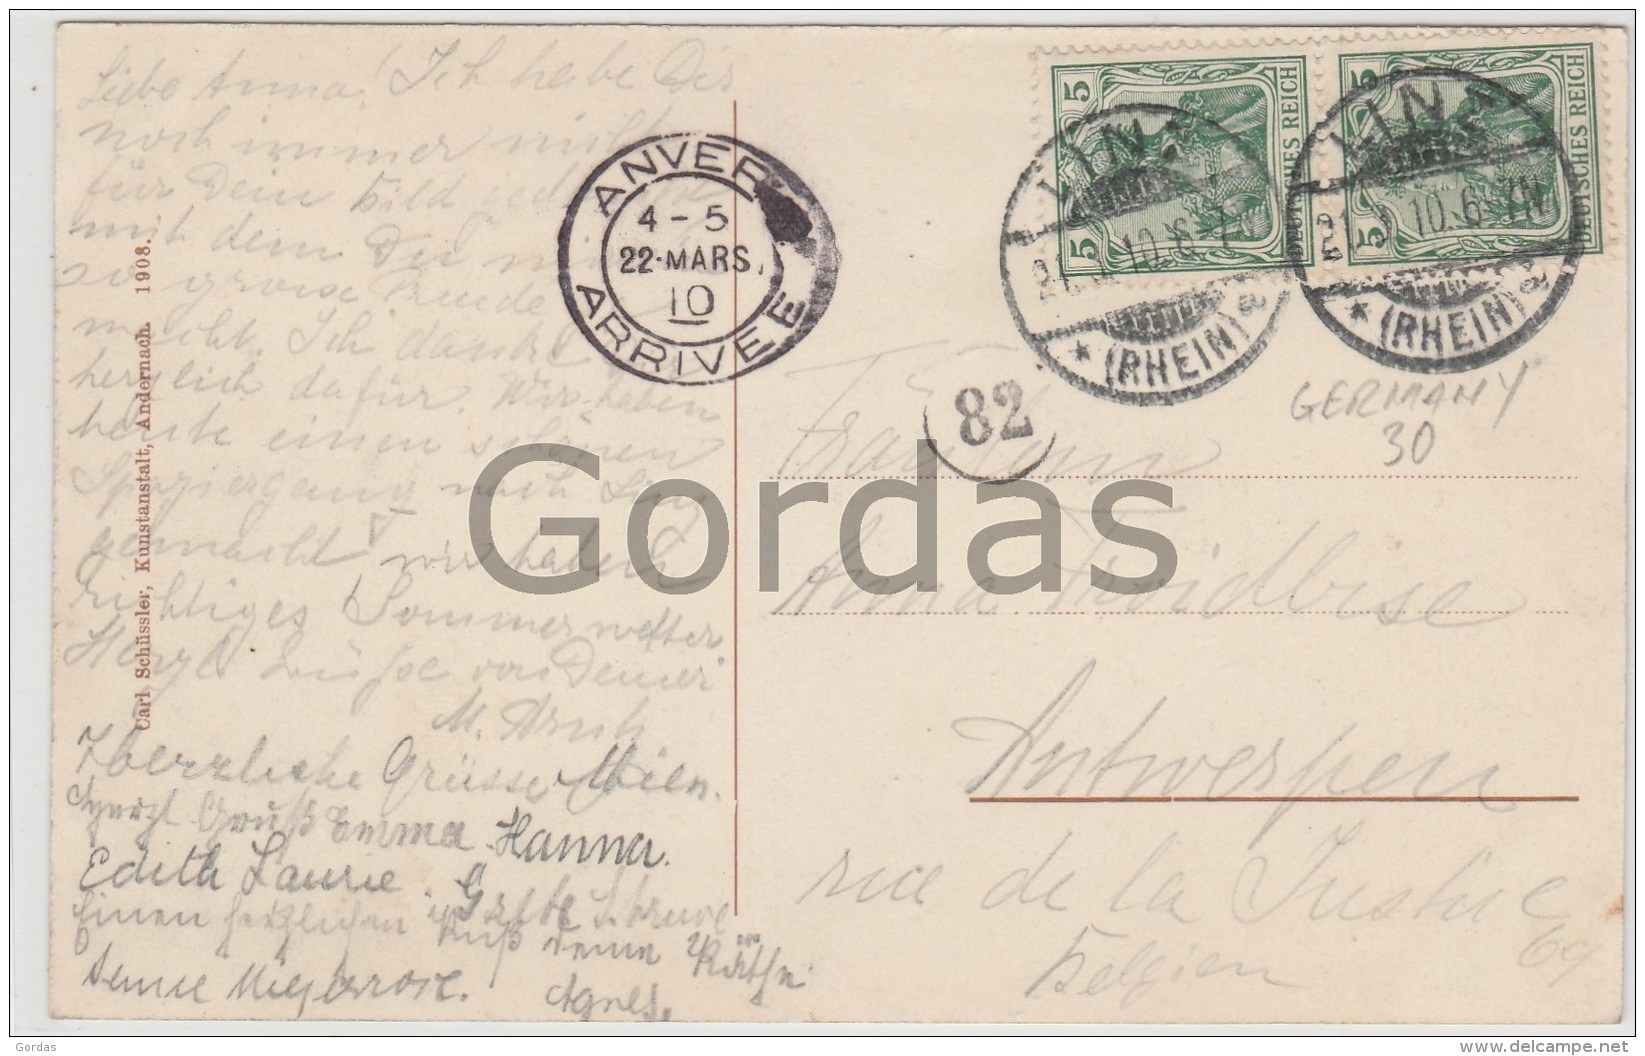 Liebe Anna! Ich habe Dir
noch immer nicht
für Dein Bild
mit dem Du
so grosse Freude
macht. Ich danke
herzlich dafür. Wir haben
heute einen schönen
Spaziergang nach
gemacht wir haben
richtiges Sommerwetter
Herzl. Grüße von Deiner
M.
Herzliche Grüsse
Herzl Gruß Emma Hanna.
Edith Laurie. Grete
Einen herzlichen
Kuß deine Käthe
Agnes.
Carl Schüssler, Kunstanstalt, Andernach. 1908.
ANVER
4 - 5
22·MARS.
10
ARRIVEE
5 DEUTSCHES REICH 5
5 DEUTSCHES REICH 5
LINZ
21.3.10.6-7N
* (RHEIN) a
LINZ
21.3.10.6-7N
* (RHEIN) a
82
GERMANY
30
Fräulein
Anna
Antwerpen
rue de la Justice
69
Belgien
Gordas
Gordas